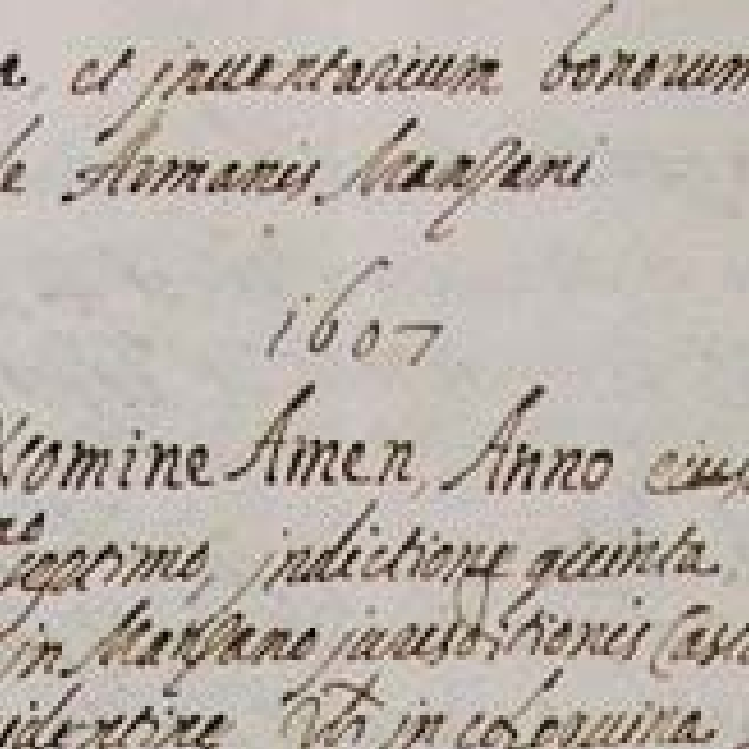 et inuentarium bonorum
de Armanis Marzani
1607
Nomine Amen, Anno eius
septimo, indictione quinta
in Marzano jurisditionis Cast
identine